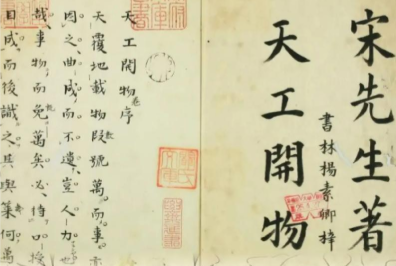 宋先生著
書林楊素卿梓
天工開物
天工開物卷序
天覆地載物數號萬而事亦
因之曲成而不遺豈人力也
哉事物而既萬矣必待口授
目成而後識之其與幾何萬